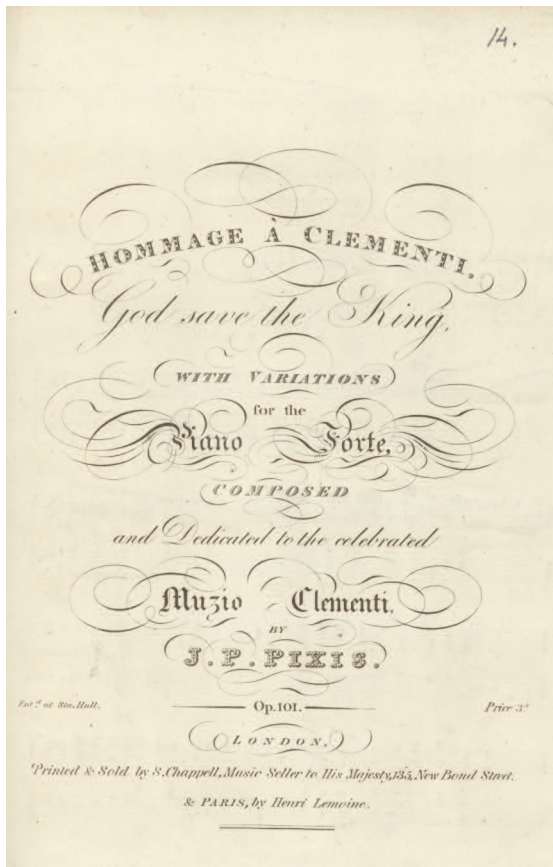 14.
HOMMAGE À CLEMENTI.
God save the King,
WITH VARIATIONS
for the
Piano Forte,
COMPOSED
and Dedicated to the celebrated
Muzio Clementi,
BY
J. P. PIXIS.
Ent.d at Sta. Hall. Op. 101. Price 3s
LONDON,
Printed & Sold by S. Chappell, Music Seller to His Majesty, 135, New Bond Street.
& PARIS, by Henri Lemoine.